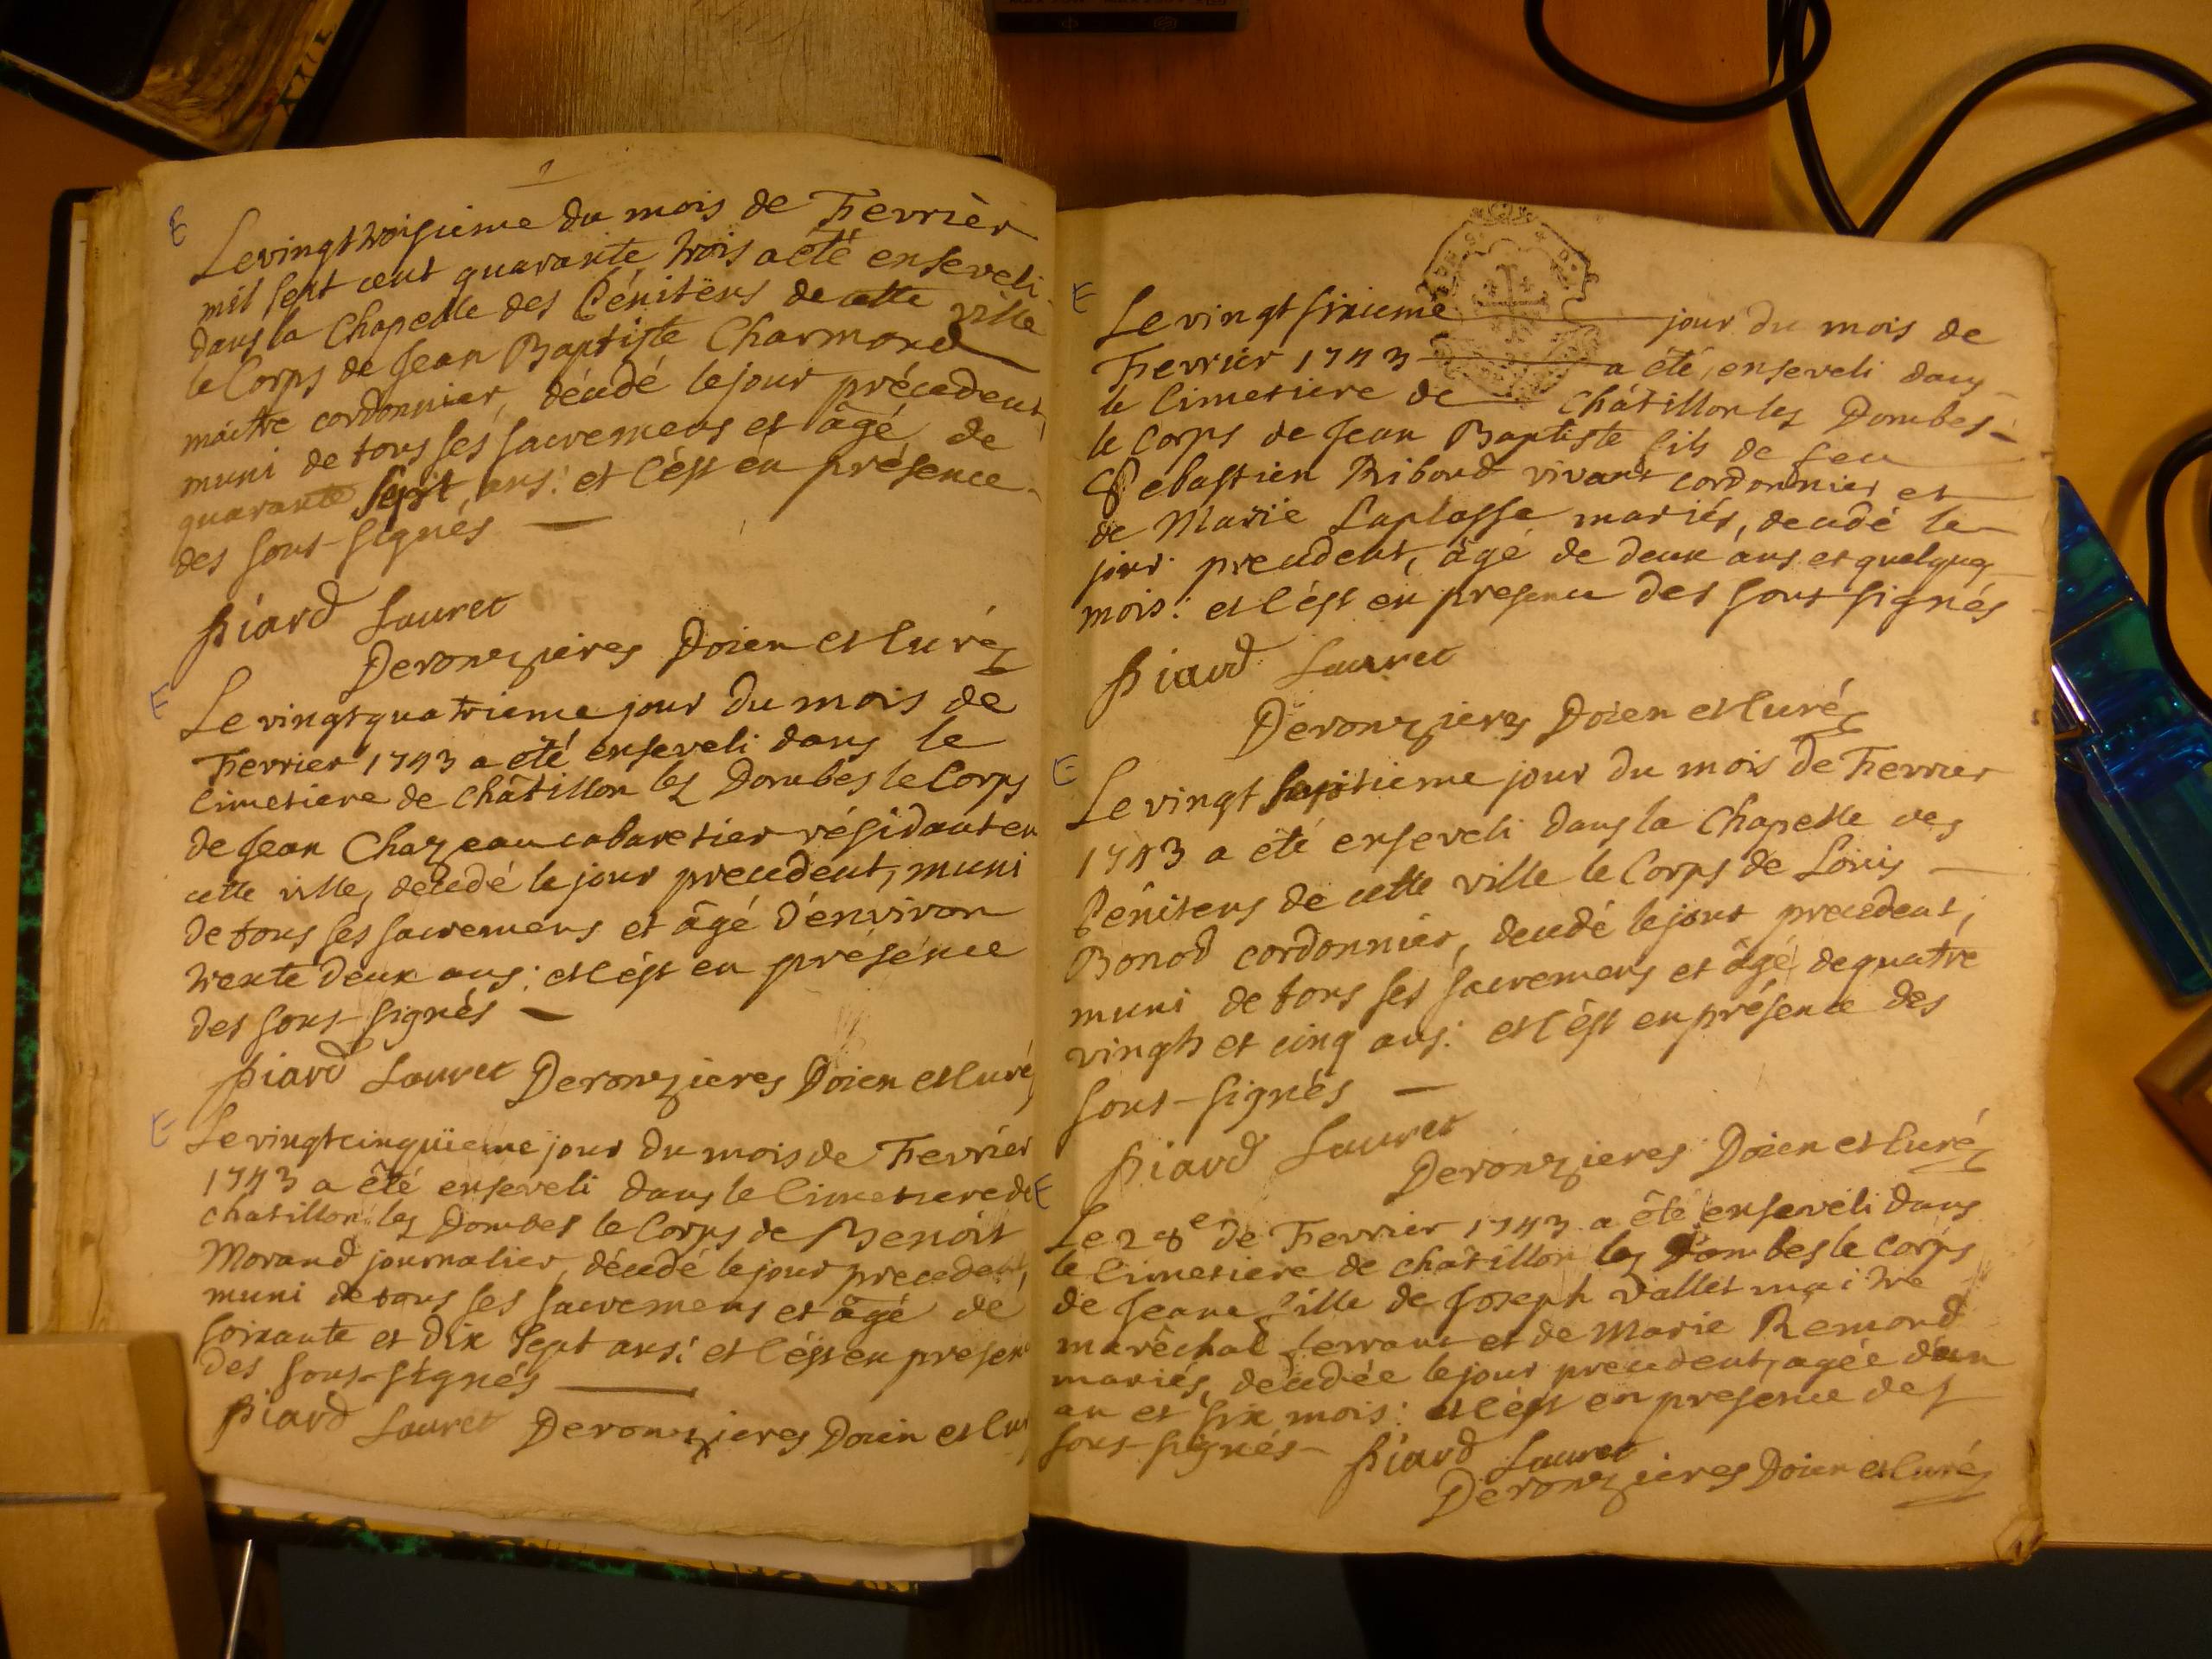 E
Le vingt troisieme du mois de Fevrièr
mil sept cent quarante trois a été enseveli
dans la Chapelle des Pénitens de cette ville
le Corps de Jean Baptiste Charmond
maitre cordonnier, décédé le jour précedent,
muni de tous ses sacremens et âgé de
quarante sept ans: et c'ést en présence
des sous-signés —
Piard Lauret
Deronzieres Doien et Curé
E
Le vingt quatrieme jour du mois de
Fevrier 1743 a été enseveli dans le
Cimetiere de Châtillon les Dombes le Corps
de Jean Chazeau cabaretier résidant en
cette ville, decedé le jour precedent, muni
de tous ses sacremens et âgé d'environ
trente deux ans: et c'ést en présénce
des sous-signés —
Piard Lauret Deronzieres Doien et Curé
E
Le vingt cinquieme jour du mois de Fevrier
1743 a été enseveli dans le Cimetiere de
chatillon les Dombes le Corps de Benoit
Morand journalier, décedé le jour precedent,
muni de tous ses sacremens et âgé de
soixante et dix sept ans: et c'ést en presen
des sous-signés —
Piard Lauret Deronzieres Doien et Cu
E
Le vingt sixieme — jour du mois de
Fevrier 1743 — a été enseveli dans
le Cimetiere de — Châtillon les Dombes
le Corps de Jean Baptiste fils de feu
Sebastien Riboud vivant cordonnier et
de Marie Laplasse mariés, decedé le
jour precedent, âgé de deux ans et quelques
mois: et c'ést en presence des sous signés
Piard Lauret
Deronzieres Doien et Curé
E
Le vingt septieme jour du mois de Fevrier
1743 a été enseveli dans la Chapelle des
Pénitens de cette ville le Corps de Loüis —
Bonod cordonnier, decedé le jour precedent,
muni de tous ses sacremens et âgé de quatre
vingts et cinq ans: et c'ést en présence des
sous-signés —
Piard Lauret
Deronzieres Doien et Curé
E
Le 28e de Fevrier 1743 a été enseveli dans
le Cimetiere de chatillon les Dombes le Corps
de Jeane fille de Joseph Vallet maitre
marêchal ferrant et de Marie Remond
mariés, decedée le jour precedent, agée d'un
an et six mois: et c'ést en presence des
sous-signés — Piard Lauret
Deronzieres Doien et Curé